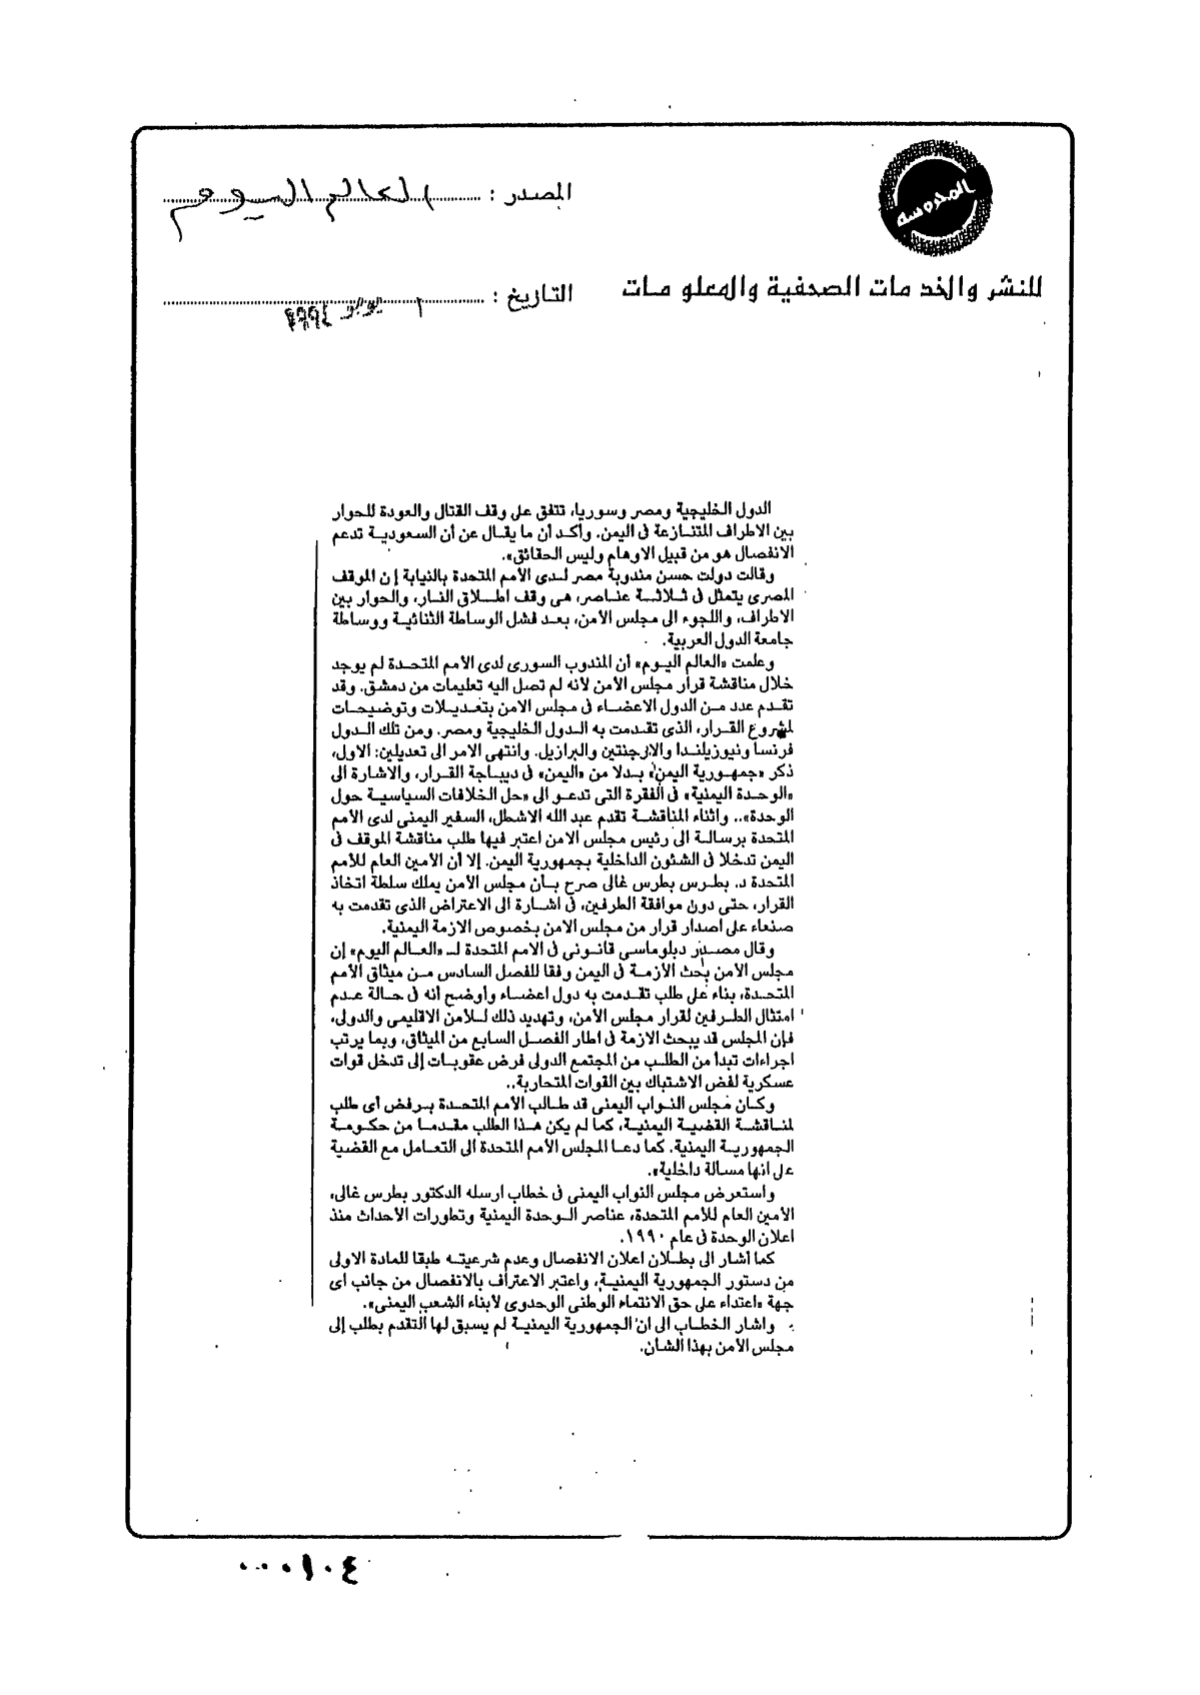 المحروسة
المصدر : العالم اليوم
للنشر والخدمات الصحفية والمعلومات
التاريخ : ١ يونيو ١٩٩٤
الدول الخليجية ومصر وسوريا، تتفق على وقف القتال والعودة للحوار
بين الاطراف المتنازعة فى اليمن. وأكد أن ما يقال عن أن السعودية تدعم
الانفصال هو من قبيل الاوهام وليس الحقائق».
وقالت دولت حسن مندوبة مصر لدى الأمم المتحدة بالنيابة إن الموقف
المصرى يتمثل فى ثلاثة عناصر، هى وقف اطلاق النار، والحوار بين
الاطراف، واللجوء الى مجلس الأمن، بعد فشل الوساطة الثنائية ووساطة
جامعة الدول العربية.
وعلمت «العالم اليوم» أن المندوب السورى لدى الأمم المتحدة لم يوجد
خلال مناقشة قرار مجلس الأمن لانه لم تصل اليه تعليمات من دمشق. وقد
تقدم عدد من الدول الاعضاء فى مجلس الامن بتعديلات وتوضيحات
لمشروع القرار، الذى تقدمت به الدول الخليجية ومصر. ومن تلك الدول
فرنسا ونيوزيلندا والارجنتين والبرازيل. وانتهى الامر الى تعديلين: الاول،
ذكر «جمهورية اليمن» بدلا من «اليمن» فى ديباجة القرار، والاشارة الى
«الوحدة اليمنية» فى الفقرة التى تدعو الى «حل الخلافات السياسية حول
الوحدة».. واثناء المناقشة تقدم عبد الله الاشطل، السفير اليمنى لدى الأمم
المتحدة برسالة الى رئيس مجلس الامن اعتبر فيها طلب مناقشة الموقف فى
اليمن تدخلا فى الشئون الداخلية بجمهورية اليمن. إلا أن الامين العام للأمم
المتحدة د. بطرس بطرس غالى صرح بأن مجلس الأمن يملك سلطة اتخاذ
القرار، حتى دون موافقة الطرفين، فى اشارة الى الاعتراض الذى تقدمت به
صنعاء على اصدار قرار من مجلس الامن بخصوص الازمة اليمنية.
وقال مصدر دبلوماسى قانونى فى الامم المتحدة لـ «العالم اليوم» إن
مجلس الامن بحث الأزمة فى اليمن وفقا للفصل السادس من ميثاق الأمم
المتحدة، بناء على طلب تقدمت به دول اعضاء وأوضح أنه فى حالة عدم
امتثال الطرفين لقرار مجلس الأمن، وتهديد ذلك للامن الاقليمى والدولى،
فإن المجلس قد يبحث الازمة فى اطار الفصل السابع من الميثاق، وبما يرتب
اجراءات تبدا من الطلب من المجتمع الدولى فرض عقوبات إلى تدخل قوات
عسكرية لفض الاشتباك بين القوات المتحاربة..
وكان مجلس النواب اليمنى قد طالب الأمم المتحدة برفض أى طلب
لمناقشة القضية اليمنية، كما لم يكن هذا الطلب مقدما من حكومة
الجمهورية اليمنية. كما دعا المجلس الأمم المتحدة الى التعامل مع القضية
على انها مسالة داخلية».
واستعرض مجلس النواب اليمنى فى خطاب ارسله الدكتور بطرس غالى،
الامين العام للأمم المتحدة، عناصر الوحدة اليمنية وتطورات الأحداث منذ
اعلان الوحدة فى عام ١٩٩٠.
كما أشار الى بطلان اعلان الانفصال وعدم شرعيته طبقا للمادة الاولى
من دستور الجمهورية اليمنية، واعتبر الاعتراف بالانفصال من جانب اى
جهة «اعتداء على حق الانتماء الوطنى الوحدوى لأبناء الشعب اليمنى».
واشار الخطاب الى ان الجمهورية اليمنية لم يسبق لها التقدم بطلب إلى
مجلس الأمن بهذا الشأن.
٠٠٠٠١٠٤